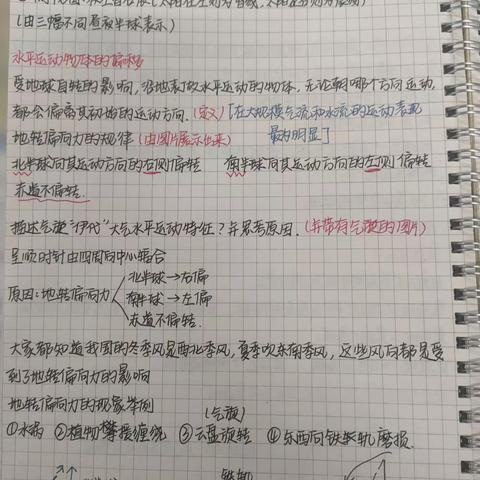 (由三幅不同昼夜半球表示)
水平运动物体的偏移
受地球自转的影响,沿地表做水平运动的物体,无论朝哪个方向运动,
都会偏离其初始的运动方向.(定义)[在大规模气流和水流的运动表现
地转偏向力的规律(由图片展示出来) 最为明显]
北半球向其运动方向的右侧偏转 南半球向其运动方向的左侧偏转
赤道不偏转.
描述气旋"伊代"大气水平运动特征?并思考原因.(并带有气旋的图片)
呈顺时针由四周向中心辐合
北半球→右偏
原因:地转偏向力 南半球→左偏
赤道不偏转.
大家都知道我国的冬季风是西北季风,夏季吹东南季风,这些风向都是受
到了地转偏向力的影响
地转偏向力的现象举例
(气旋)
①水涡 ②植物攀援缠绕 ③云盘旋转 ④东西向铁轨轨磨损.
铁轨